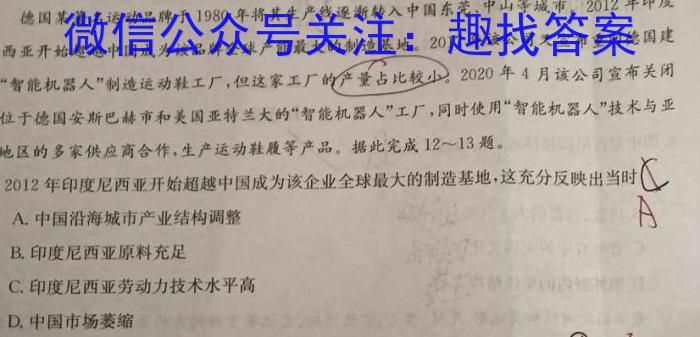 德国某著名运动品牌于1980年将其生产线逐渐转入中国东莞、中山等城市。2012年印度
微信公众号关注：趣找答案
西亚开始超越中国成为该品牌全球产能最大的制造基地。20
德国建
“智能机器人”制造运动鞋工厂,但这家工厂的产量占比较小。2020年4月该公司宣布关闭
位于德国安斯巴赫市和美国亚特兰大的“智能机器人”工厂,同时使用“智能机器人”技术与亚
地区的多家供应商合作,生产运动鞋履等产品。据此完成12～13题。
2012年印度尼西亚开始超越中国成为该企业全球最大的制造基地,这充分反映出当时
C
A
A. 中国沿海城市产业结构调整
B. 印度尼西亚原料充足
C. 印度尼西亚劳动力技术水平高
D. 中国市场萎缩